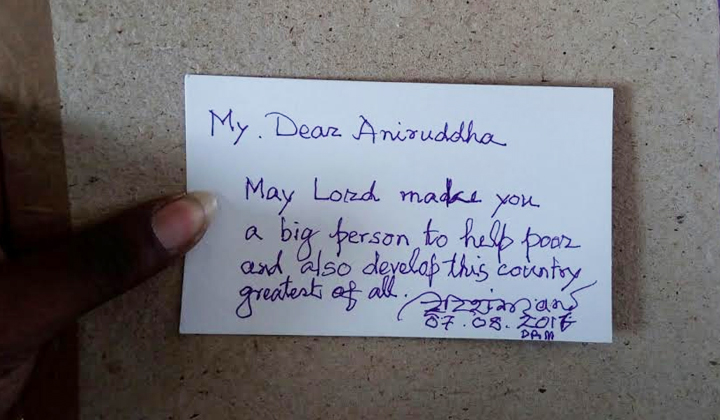 My. Dear Aniruddha
May Lord make you
a big person to help poor
and also develop this country
greatest of all.
07.08.2016